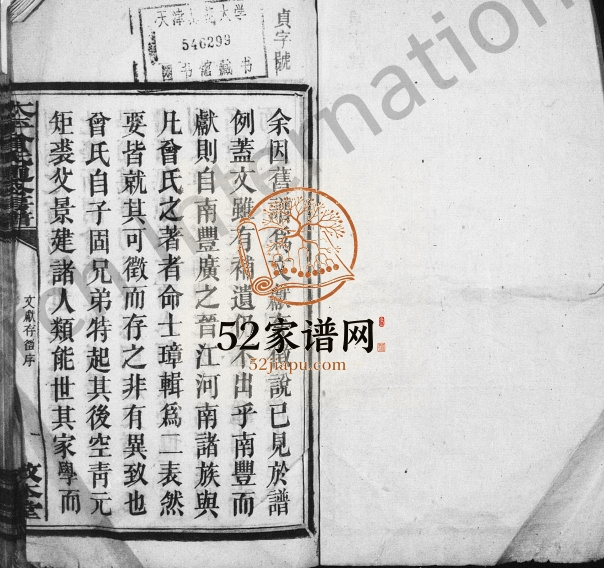 貞字號
天津
大學
546299
图书馆藏书
余因舊譜為文獻說已見於譜
例蓋文雖有補遺仍不出乎南豐而
獻則自南豐廣之晉江河南諸族與
凡曾氏之著者命士璋輯為二表然
要皆就其可徵而存之非有異致也
曾氏自子固兄弟特起其後空靑元
矩裘父景建諸人類能世其家學而
文獻存徵序
52家谱网
52jiapu.com
en International